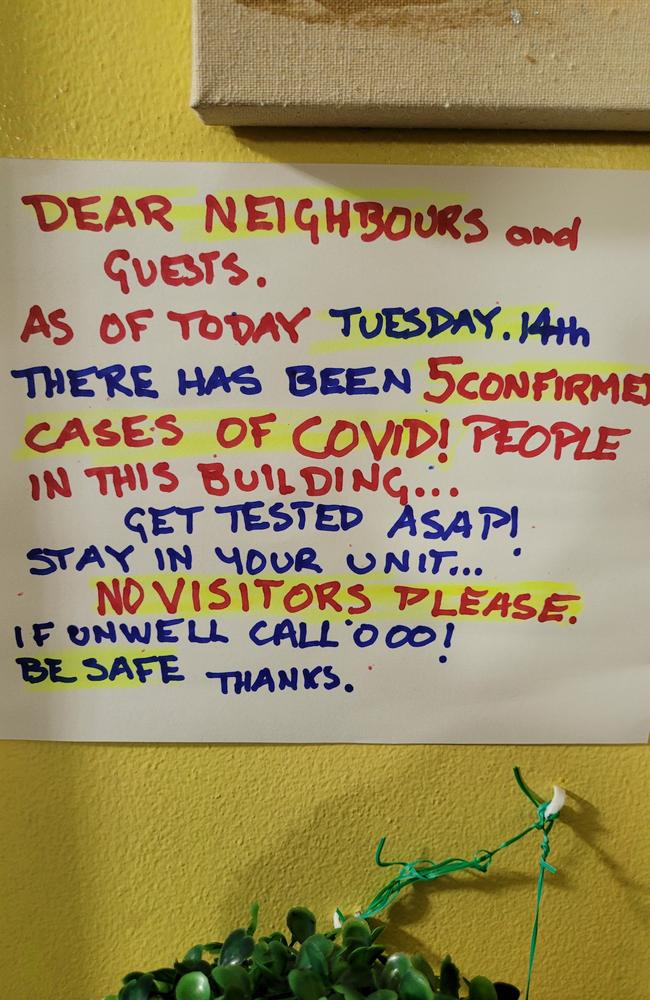 DEAR NEIGHBOURS and
GUESTS.
AS OF TODAY TUESDAY.14th
THERE HAS BEEN 5 CONFIRMED
CASES OF COVID! PEOPLE
IN THIS BUILDING...
GET TESTED ASAP!
STAY IN YOUR UNIT...
NO VISITORS PLEASE.
IF UNWELL CALL 000!
BE SAFE THANKS.